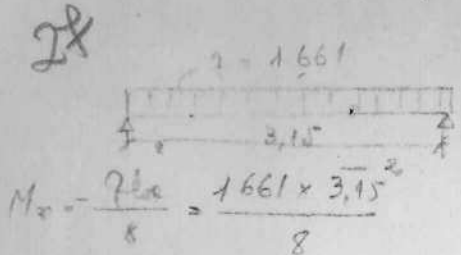 q = 1661
3,15
Mx = - qlx / 8 = 1661 x 3,15² / 8